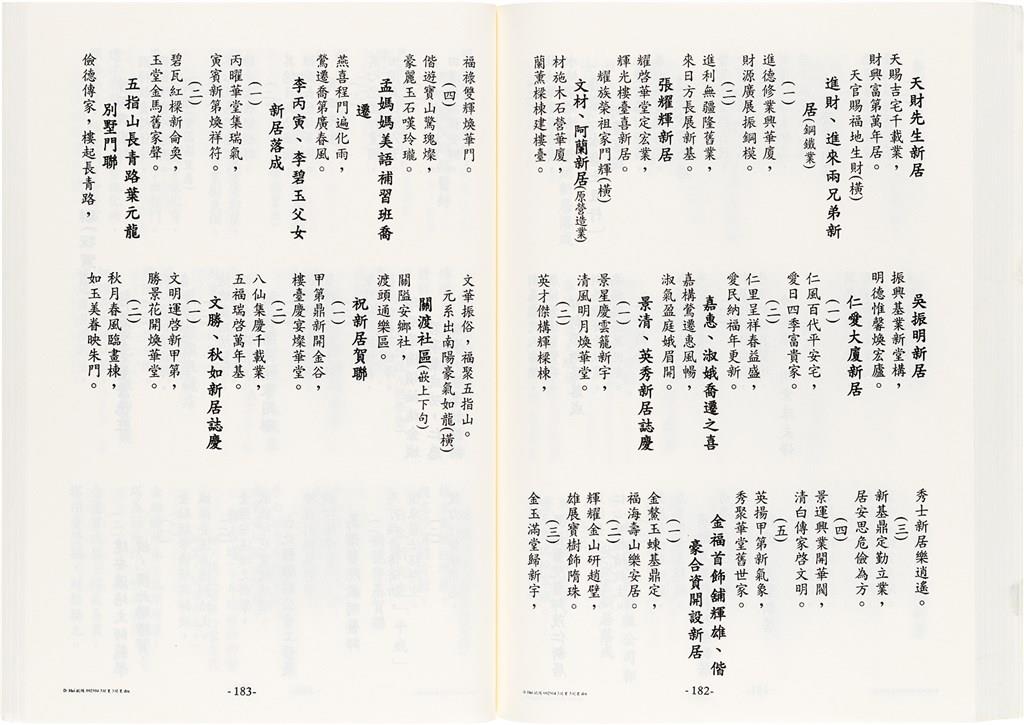 天財先生新居
天賜吉宅千載業，
財興富第萬年居。
天官賜福地生財(橫)
進財、進來兩兄弟新
居(銅鐵業)
(一)
進德修業興華廈，
財源廣展振銅模。
(二)
進利無疆隆舊業，
來日方長展新基。
張耀輝新居
耀啓華堂定宏業，
輝光樓臺喜新居。
耀族榮祖家門輝(橫)
文材、阿蘭新居(原營造業)
材施木石營華廈，
蘭薰樑棟建樓臺。
吳振明新居
振興基業新堂構，
明德惟馨煥宏廬。
仁愛大廈新居
(一)
仁風百代平安宅，
愛日四季富貴家。
(二)
仁里呈祥春益盛，
愛民納福年更新。
嘉惠、淑娥喬遷之喜
嘉構鶯遷惠風暢，
淑氣盈庭娥眉開。
景清、英秀新居誌慶
(一)
景星慶雲籠新宇，
清風明月煥華堂。
(二)
英才傑構輝樑棟，
秀士新居樂逍遙。
(三)
新基鼎定勤立業，
居安思危儉為方。
(四)
景運興業開華閥，
清白傳家啓文明。
(五)
英揚甲第新氣象，
秀聚華堂舊世家。
金福首飾舖輝雄、偕
豪合資開設新居
(一)
金鰲玉蝀基鼎定，
福海壽山樂安居。
(二)
輝耀金山研趙璧，
雄展寶樹飾隋珠。
(三)
金玉滿堂歸新宇，
-182-
福祿雙輝煥華門。
(四)
偕遊寶山驚瑰燦，
豪麗玉石嘆玲瓏。
孟媽媽美語補習班喬
遷
燕喜程門遍化雨，
鶯遷喬第廣春風。
李丙寅、李碧玉父女
新居落成
(一)
丙曜華堂集瑞氣，
寅賓新第煥祥符。
(二)
碧瓦紅樑新侖奐，
玉堂金馬舊家聲。
五指山長青路葉元龍
別墅門聯
儉德傳家，樓起長青路，
文華振俗，福聚五指山。
元系出南陽豪氣如龍(橫)
關渡社區(嵌上下句)
關隘安鄉社，
渡頭通樂區。
祝新居賀聯
(一)
甲第鼎新開金谷，
樓臺慶宴燦華堂。
(二)
八仙集慶千載業，
五福瑞啓萬年基。
文勝、秋如新居誌慶
(一)
文明運啓新甲第，
勝景花開煥華堂。
(二)
秋月春風臨畫棟，
如玉美眷映朱門。
-183-